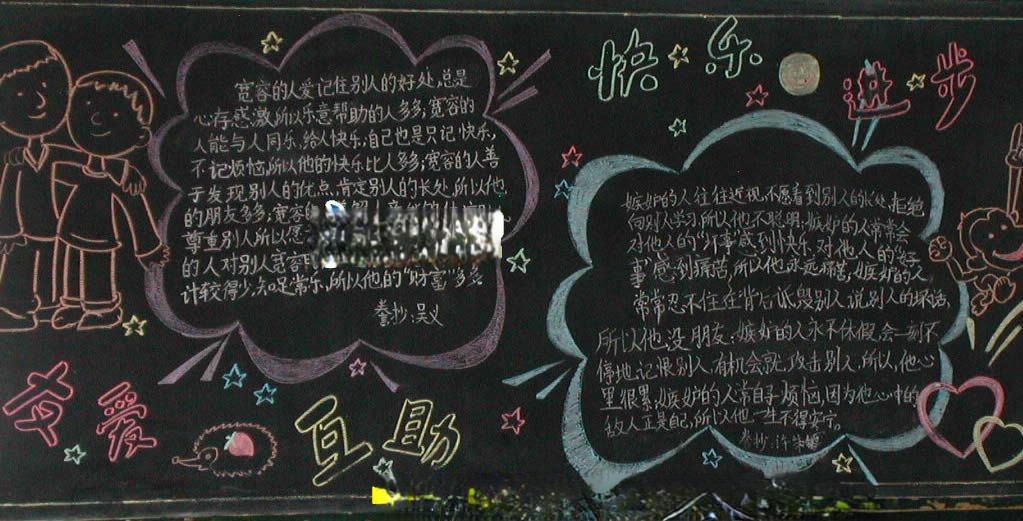 快乐进步
宽容的人爱记住别人的好处,总是
心存感激,所以乐意帮助的人多多;宽容的
人能与人同乐,给人快乐,自己也是只记快乐,
不记烦恼,所以他的快乐比人多多;宽容的人善
于发现别人的优点,肯定别人的长处,所以他
的朋友多多;宽容
尊重别人所以愿
的人对别人宽容
计较得少,知足常乐,所以他的“财富”多多。
誊抄:吴义
嫉妒的人往往近视,不愿看到别人的长处,拒绝
向别人学习,所以他不聪明;嫉妒的人常常会
对他人的“坏事”感到快乐,对他人的“好
事”感到痛苦,所以他永远痛苦;嫉妒的人
常常忍不住在背后诋毁别人,说别人的坏话,
所以他没朋友;嫉妒的人永不休假,会一刻不
停地记恨别人,有机会就攻击别人,所以,他心
里很累;嫉妒的人常自寻烦恼,因为他心中的
敌人正是自己,所以他一生不得安宁。
誊抄:许
友爱互助